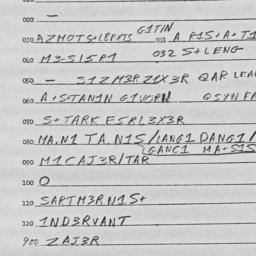 020 —
G1TIN
030 AZMOTS+LEFXTS 031 A R1S+A+T1
040 M3-S15R1 032 S+LENG
050 — S1ZM3RZ1X3R QAR LEA
060 A+STAN1N G1VORN QSYN FA
070 S+TARK ESRL3X3R
080 MA,N1 TA,N1S/1ANG1 DANG1/
GANC1 MA+S1S
090 M1CAJ3R/TAR
100 O
110 SAPTM3RN1S+
120 1ND3RVANT
900 ZAJ3R